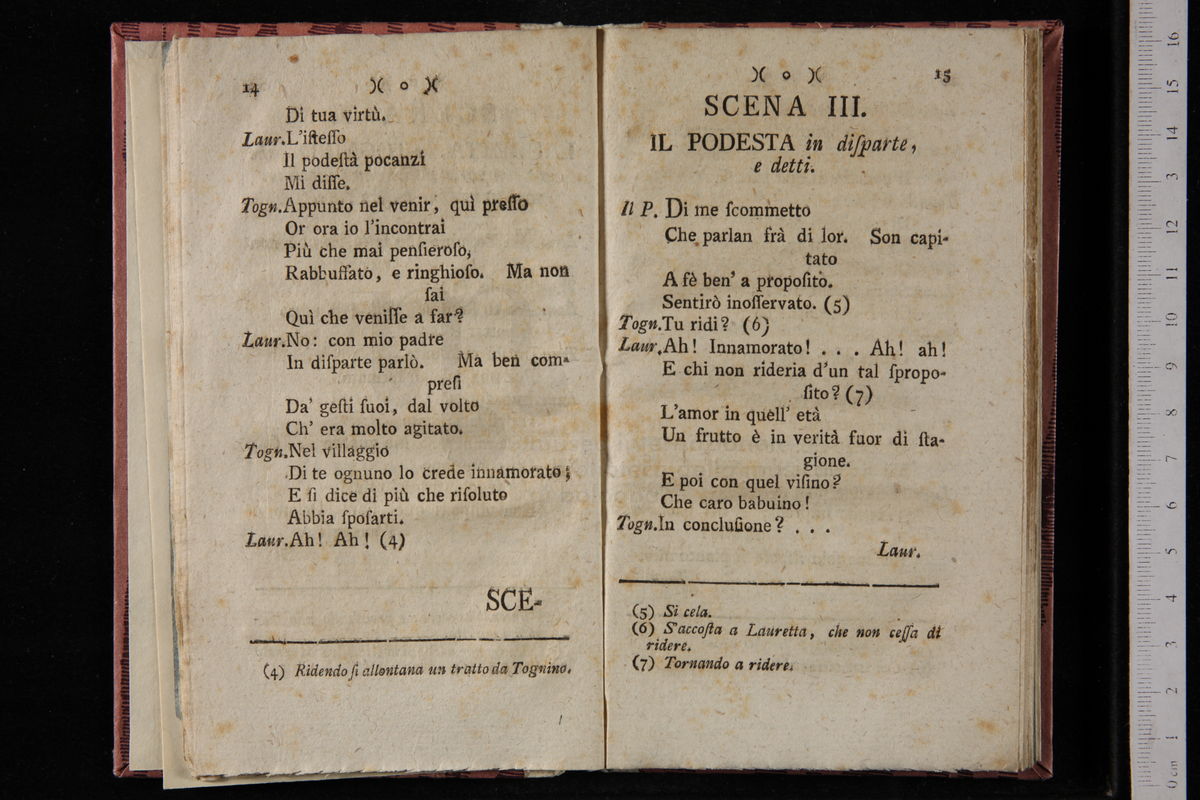 14 )( o )(
Di tua virtù.
Laur. L'iſteſſo
Il podeſtà pocanzi
Mi diſſe.
Togn. Appunto nel venir, quì preſſo
Or ora io l'incontrai
Più che mai penſieroſo,
Rabbuffato, e ringhioſo. Ma non
ſai
Quì che veniſſe a far?
Laur. No: con mio padre
In diſparte parlò. Ma ben com-
preſi
Da' geſti ſuoi, dal volto
Ch' era molto agitato.
Togn. Nel villaggio
Di te ognuno lo crede innamorato;
E ſi dice di più che riſoluto
Abbia ſpoſarti.
Laur. Ah! Ah! (4)
SCE-
(4) Ridendo ſi allontana un tratto da Tognino.
)( o )( 15
SCENA III.
IL PODESTA in diſparte,
e detti.
Il P. Di me ſcommetto
Che parlan frà di lor. Son capi-
tato
A fè ben' a propoſitò.
Sentirò inoſſervato. (5)
Togn. Tu ridi? (6)
Laur. Ah! Innamorato! . . . Ah! ah!
E chi non rideria d'un tal ſpropo-
ſito? (7)
L'amor in quell' età
Un frutto è in verità fuor di ſta-
gione.
E poi con quel viſino?
Che caro babuino!
Togn. In concluſione? . . .
Laur.
(5) Si cela.
(6) S'accoſta a Lauretta, che non ceſſa di
ridere.
(7) Tornando a ridere.
0 cm 1 2 3 4 5 6 7 8 9 10 11 12 3 14 15 16